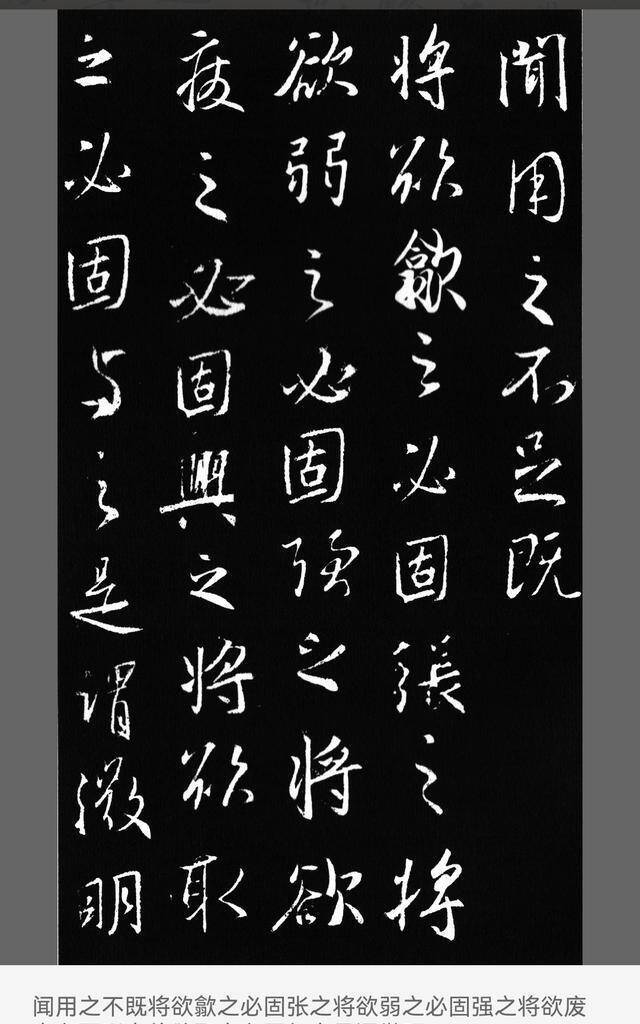 聞用之不足既
将欲歙之必固張之将
欲弱之必固強之将欲
廢之必固興之将欲取
之必固与之是謂微明
闻用之不既将欲歙之必固张之将欲弱之必固强之将欲废